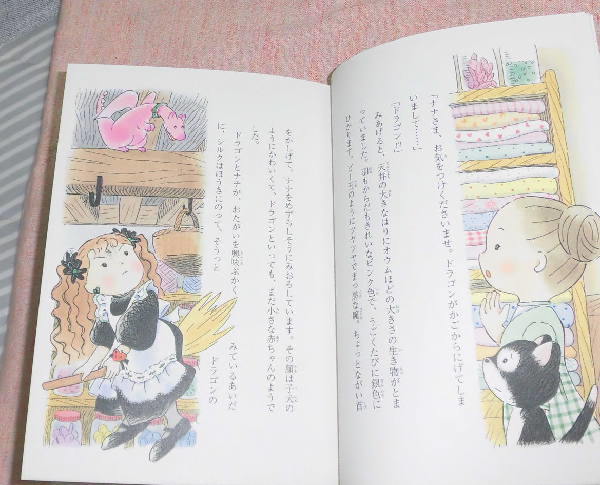 「ナナさま、お気をつけくださいませ。ドラゴンがかごからにげてしま
いまして……」
「ドラゴン!?」
みあげると、天井の大きなはりにオウムほどの大きさの生き物がとま
っていました。羽もからだもきれいなピンク色で、うごくたびに銀色に
ひかります。ビー玉のようにツヤツヤでまっ黒な瞳。ちょっとながい首
をかしげて、ナナをめずらしそうにみおろしています。その顔は子犬の
ようにかわいくて、ドラゴンといっても、まだ小さな赤ちゃんのようで
した。
ドラゴンとナナが、おたがいを興味ぶかく みているあいだ
に、シルクはほうきにのって、そうっと ドラゴンの